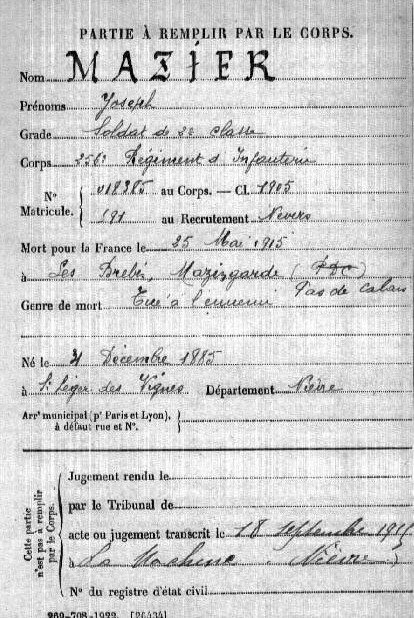 PARTIE À REMPLIR PAR LE CORPS.
Nom MAZIER
Prénoms Joseph
Grade Soldat de 2e classe
Corps 256e Régiment d'Infanterie
N° Matricule. 018385 au Corps. — Cl. 1905
691 au Recrutement Nevers
Mort pour la France le 25 Mai 1915
à Les Brebis, Mazingarde (PDC)
Pas de Calais
Genre de mort Tué à l'ennemi
Né le Décembre 1885
à St Léger des Vignes Département Nièvre
Arrt municipal (pr Paris et Lyon),
à défaut rue et N°.
Cette partie n'est pas à remplir par le Corps.
Jugement rendu le
par le Tribunal de
acte ou jugement transcrit le 18 septembre 1915
à La Machine (Nièvre)
N° du registre d'état civil
269-708-1922. [26434]